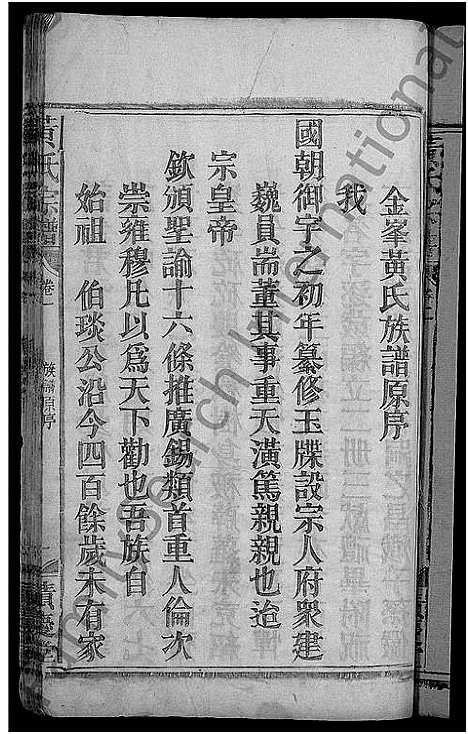 金峯黃氏族譜原序
我
國朝御宇之初年纂修玉牒設宗人府衆建
巍員耑董其事重天潢篤親親也迨
宗皇帝
欽頒聖諭十六條推廣錫類首重人倫次
崇雍穆凡以爲天下勸也吾族自
始祖 伯琰公沿今四百餘歲未有家
黃氏宗譜 卷一 族譜原序 一